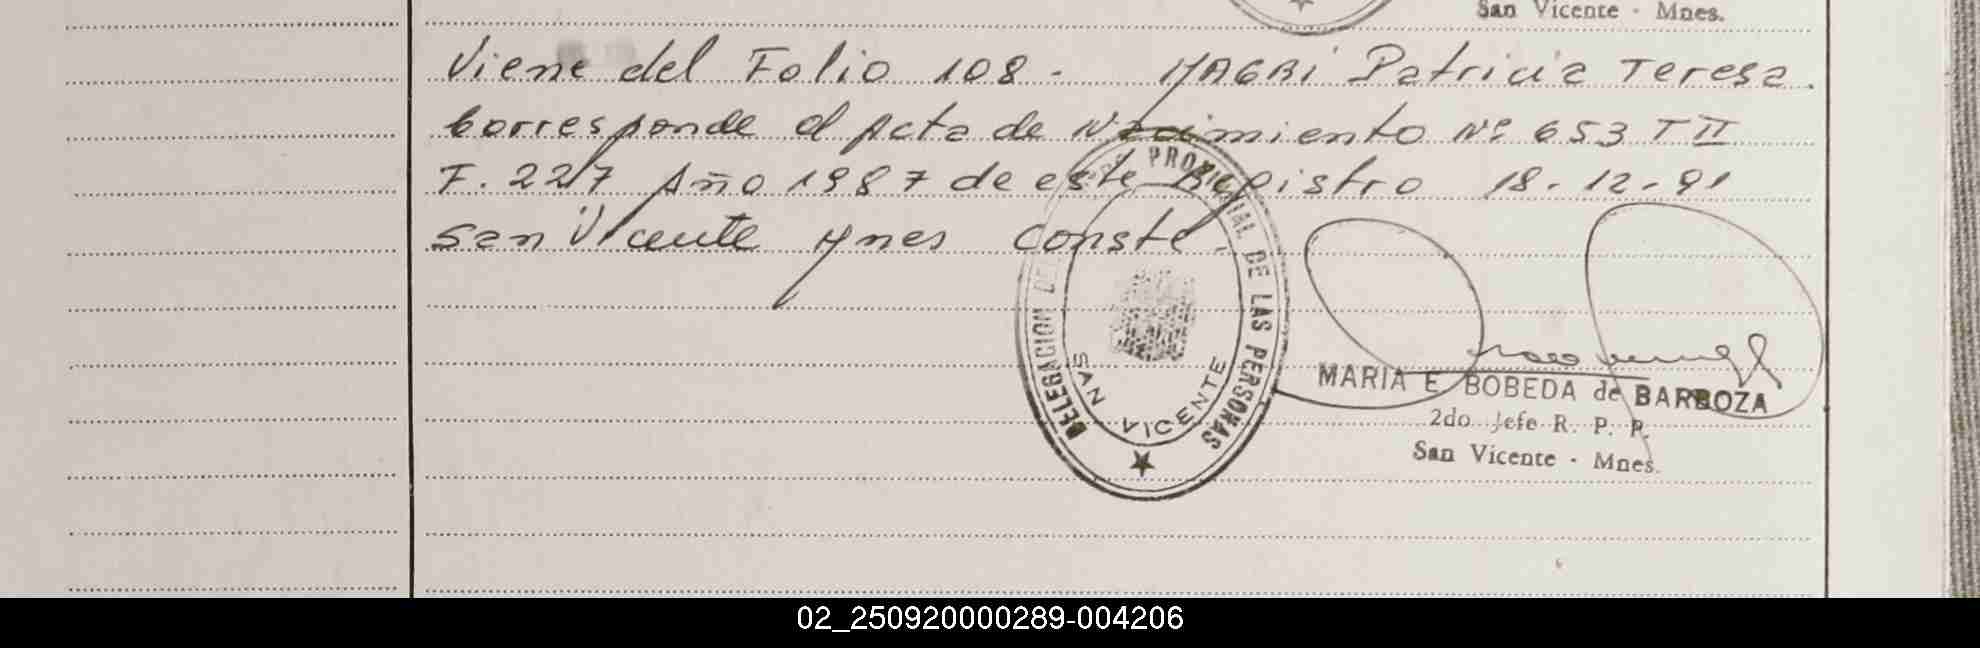 San Vicente - Mnes.
Viene del Folio 108 - MAGRI Patricia Teresa.
Corresponde al Acta de Nacimiento Nº 653 T II
F. 227 Año 1987 de este Registro 18-12-91
San Vicente Mnes Conste.
DELEGACION DEL PROVINCIAL DE LAS PERSONAS
SAN VICENTE
MARIA E BOBEDA de BARBOZA
2do Jefe R. P. P.
San Vicente - Mnes.
02_250920000289-004206